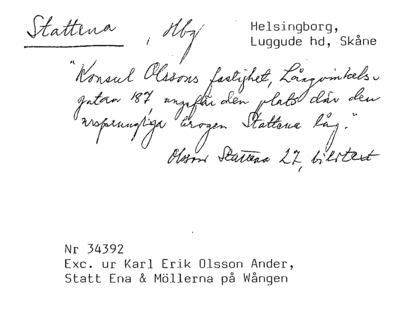 Stattena, Hbg
Helsingborg,
Luggude hd, Skåne
"Konsul Olssons fastighet, Långvinkels-
gatan 187, ungefär den plats där den
ursprungliga krogen Stattena låg."
Olsson Stattena 27, bildtext
Nr 34392
Exc. ur Karl Erik Olsson Ander,
Statt Ena & Möllerna på Wången